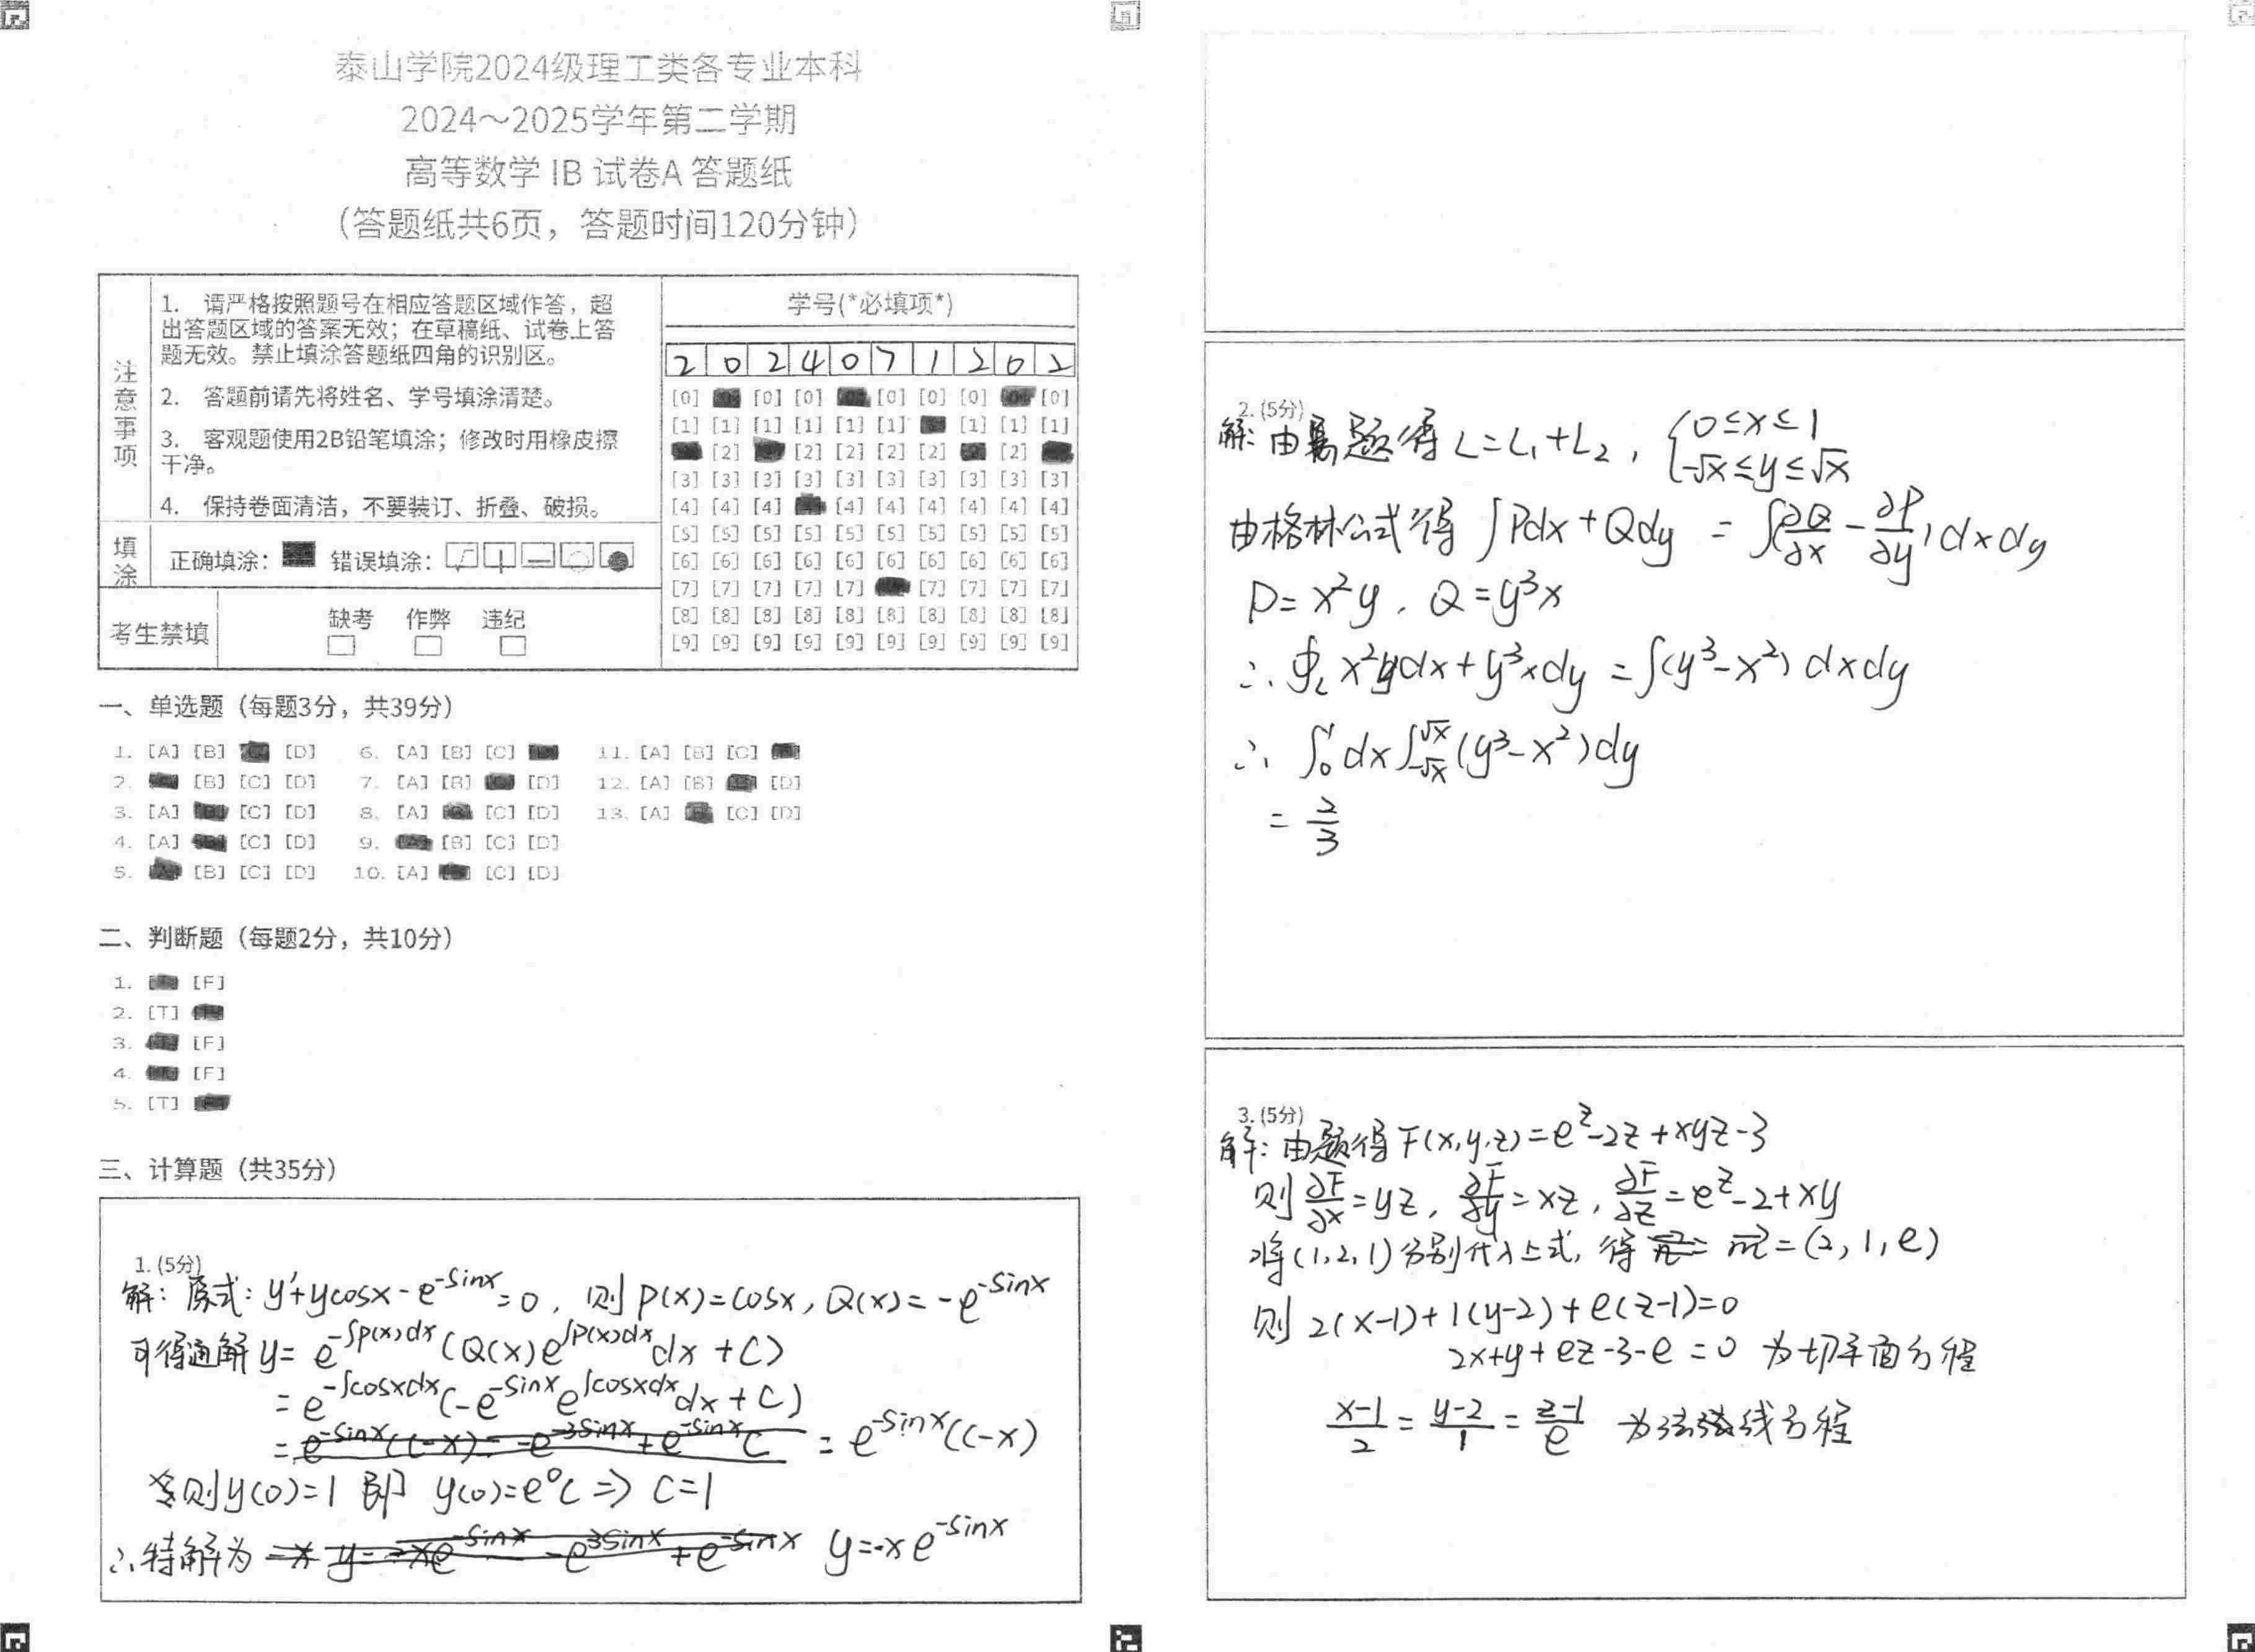 泰山学院2024级理工类各专业本科
2024～2025学年第二学期
高等数学 IB 试卷A 答题纸
（答题纸共6页，答题时间120分钟）
注意事项
1. 请严格按照题号在相应答题区域作答，超
出答题区域的答案无效；在草稿纸、试卷上答
题无效。禁止填涂答题纸四角的识别区。
2. 答题前请先将姓名、学号填涂清楚。
3. 客观题使用2B铅笔填涂；修改时用橡皮擦
干净。
4. 保持卷面清洁，不要装订、折叠、破损。
填涂
正确填涂： 错误填涂：
考生禁填
缺考 作弊 违纪
学号(*必填项*)
2 0 2 4 0 7 1 2 0 2
[0] [0] [0] [0] [0] [0] [0]
[1] [1] [1] [1] [1] [1] [1] [1] [1]
[2] [2] [2] [2] [2] [2]
[3] [3] [3] [3] [3] [3] [3] [3] [3] [3]
[4] [4] [4] [4] [4] [4] [4] [4] [4]
[5] [5] [5] [5] [5] [5] [5] [5] [5] [5]
[6] [6] [6] [6] [6] [6] [6] [6] [6] [6]
[7] [7] [7] [7] [7] [7] [7] [7] [7]
[8] [8] [8] [8] [8] [8] [8] [8] [8] [8]
[9] [9] [9] [9] [9] [9] [9] [9] [9] [9]
一、单选题（每题3分，共39分）
1. [A] [B] [D] 6. [A] [B] [C] 11. [A] [B] [C]
2. [B] [C] [D] 7. [A] [B] [D] 12. [A] [B] [D]
3. [A] [C] [D] 8. [A] [C] [D] 13. [A] [C] [D]
4. [A] [C] [D] 9. [B] [C] [D]
5. [B] [C] [D] 10. [A] [C] [D]
二、判断题（每题2分，共10分）
1. [F]
2. [T]
3. [F]
4. [F]
5. [T]
三、计算题（共35分）
1. (5分)
解：原式：y'+ycosx-e^{-sinx}=0，则P(x)=cosx，Q(x)=-e^{-sinx}
可得通解y=e^{-∫p(x)dx}(Q(x)e^{∫p(x)dx}dx+C)
=e^{-∫cosxdx}(-e^{-sinx}e^{∫cosxdx}dx+C)
=e^{-sinx}(C-x)
则y(0)=1 即 y(0)=e⁰C⇒C=1
∴特解为 y=-xe^{-sinx}
2. (5分)
解：由题得L=L₁+L₂，{0≤x≤1
-√x≤y≤√x
由格林公式得 ∫Pdx+Qdy = ∫(∂Q/∂x-∂P/∂y)dxdy
P=x²y，Q=y³x
∴∮_L x²ydx+y³xdy=∫(y³-x²)dxdy
∴ ∫₀¹dx∫_{-√x}^{√x}(y³-x²)dy
= 2/3
3. (5分)
解：由题得F(x,y,z)=e^z-2z+xyz-3
则 ∂F/∂x=yz，∂F/∂y=xz，∂F/∂z=e^z-2+xy
将(1,2,1)分别代入上式，得 m⃗=(2,1,e)
则 2(x-1)+1(y-2)+e(z-1)=0
2x+y+ez-3-e=0 为切平面方程
(x-1)/2=(y-2)/1=(z-1)/e 为法线方程